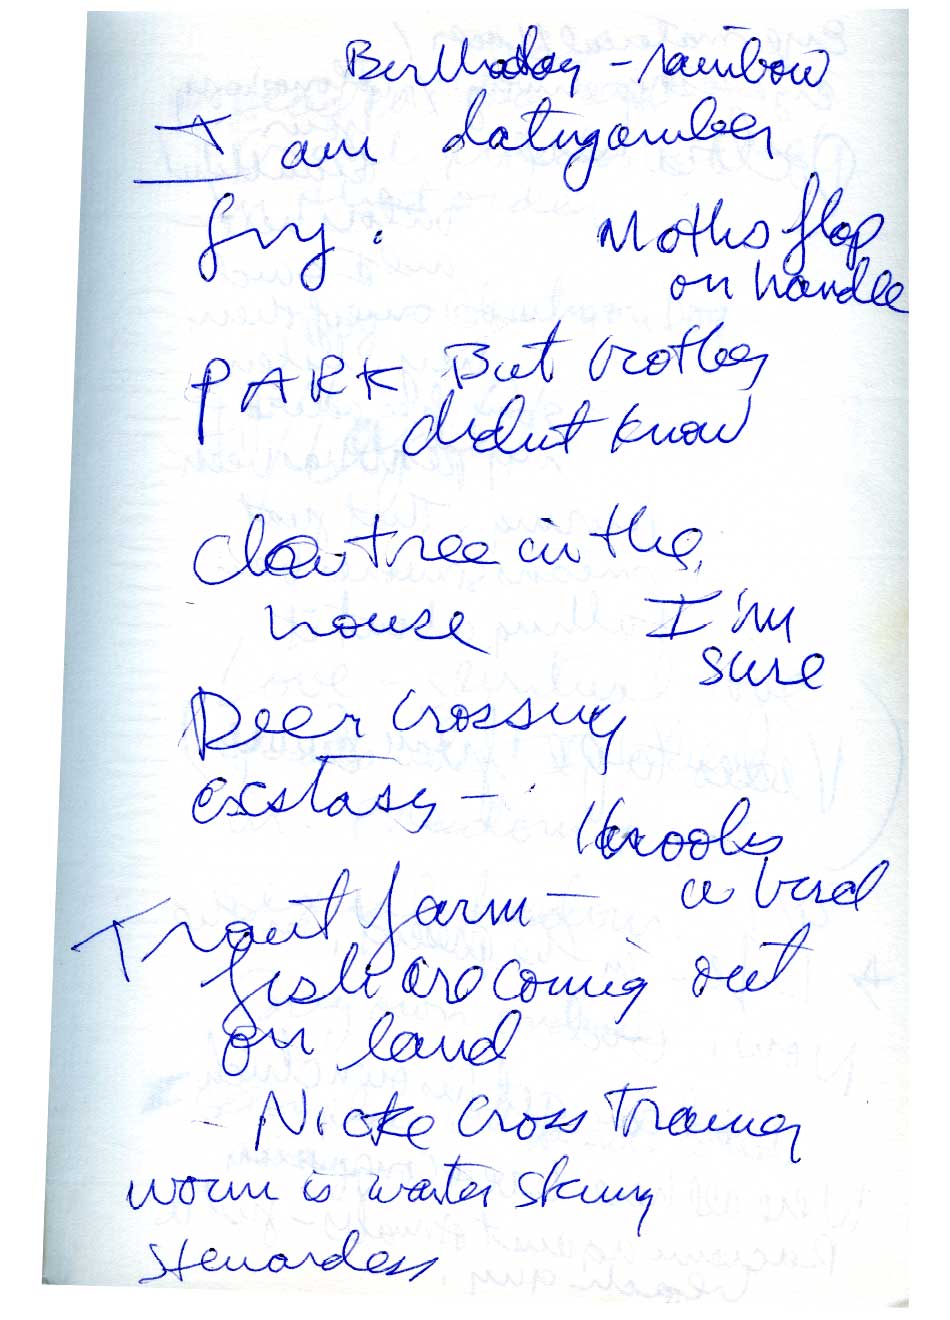 Birthday - rainbow
I am
fry.
Moths flop
on handle
PARK But brother
didnt know
tree in the
house I'm
sure
Deer Crossing
ecstasy -
a bird
Trout farm -
fish are coming out
on land
Cross Trainer
worm is water skiing
stewardess